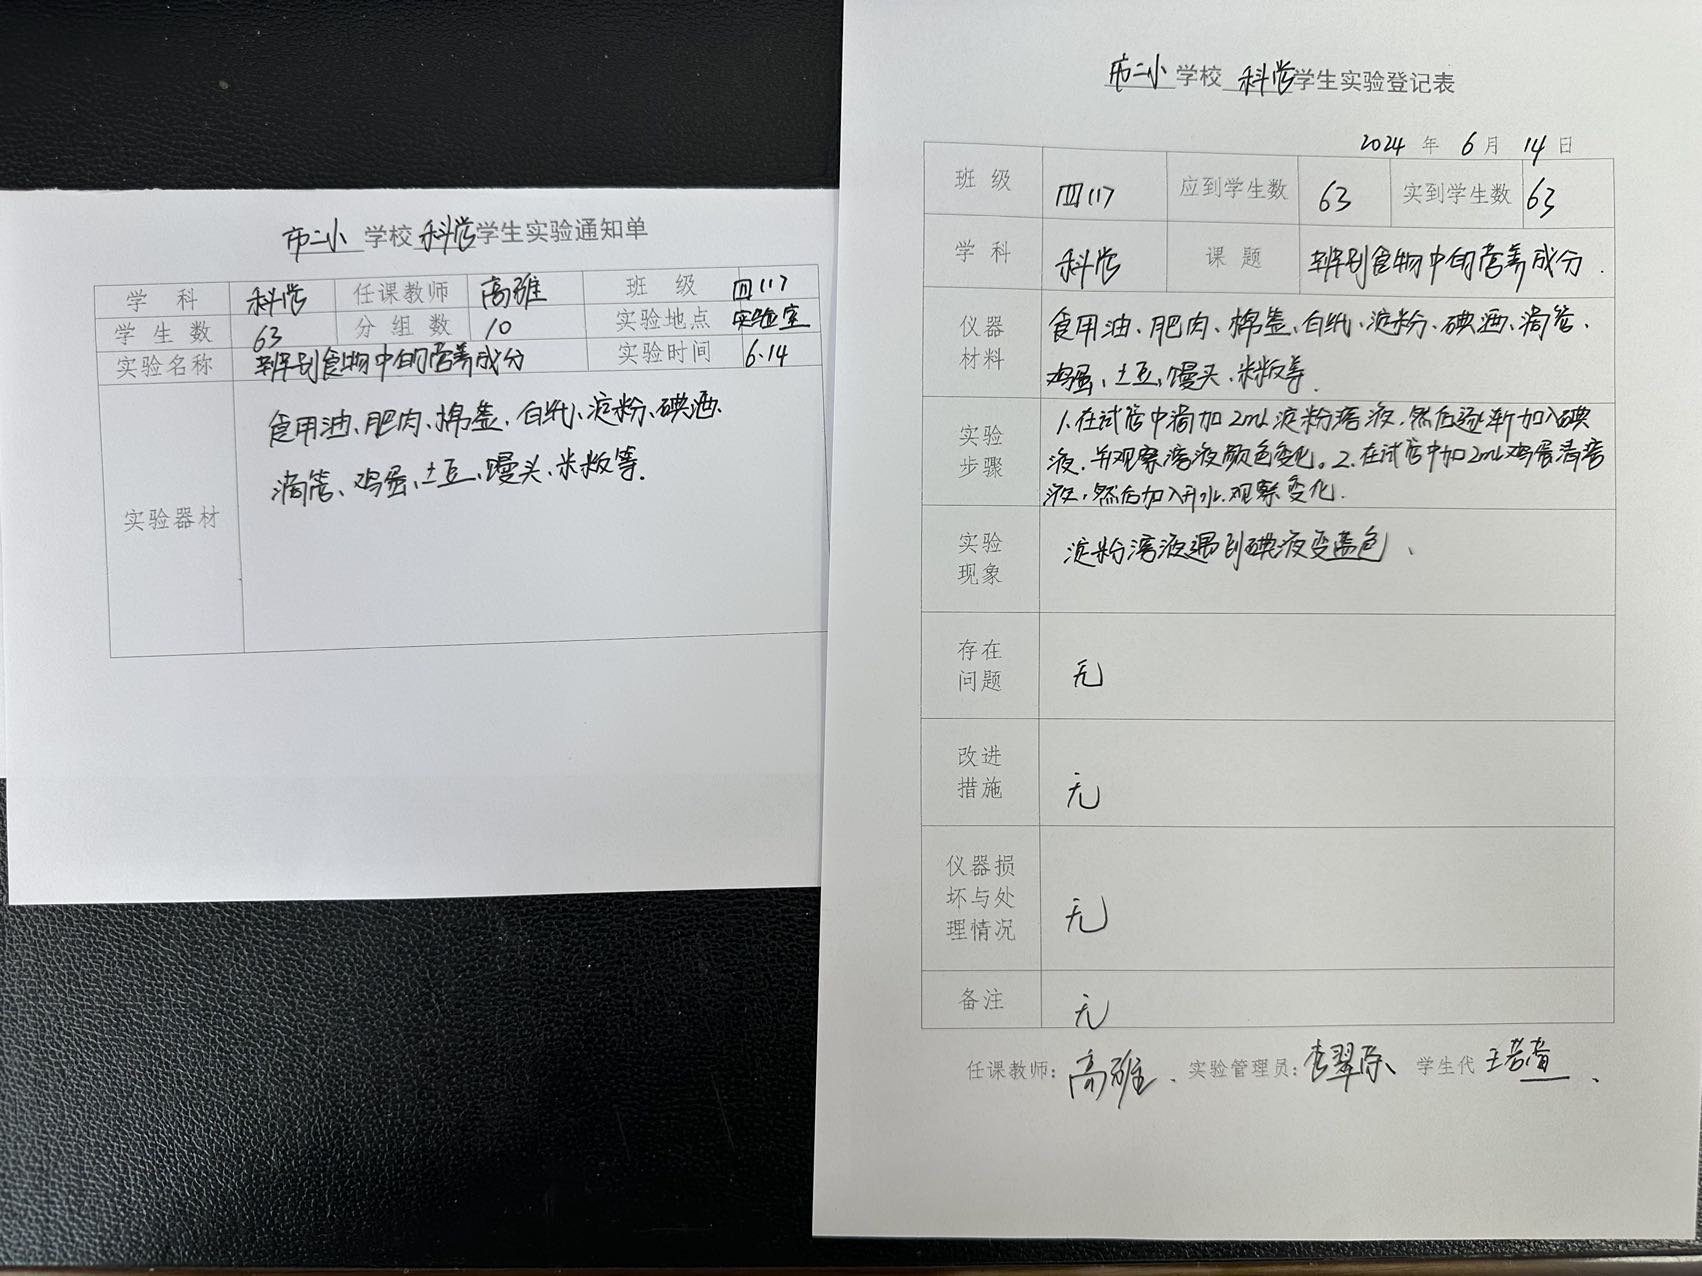 市二小 学校 科学学生实验通知单
学科 科学 任课教师 高雅 班级 四(17
学生数 63 分组数 10 实验地点 实验室
实验名称 辨别食物中的营养成分 实验时间 6.14
实验器材
食用油、肥肉、棉签、白纸、淀粉、碘酒、
滴管、鸡蛋、土豆、馒头、米饭等.
市二小 学校 科学学生实验登记表
2024 年 6 月 14 日
班级 四(17 应到学生数 63 实到学生数 63
学科 科学 课题 辨别食物中的营养成分.
仪器
材料
食用油、肥肉、棉签、白纸、淀粉、碘酒、滴管、
鸡蛋、土豆、馒头、米饭等.
实验
步骤
1.在试管中滴加2mL淀粉溶液,然后逐渐加入碘
液,并观察溶液颜色变化。2.在试管中加2mL鸡蛋清溶
液,然后加入开水,观察变化.
实验
现象
淀粉溶液遇到碘液变蓝色、
存在
问题
无
改进
措施
无
仪器损
坏与处
理情况
无
备注 无
任课教师: 高雅、 实验管理员: 学生代